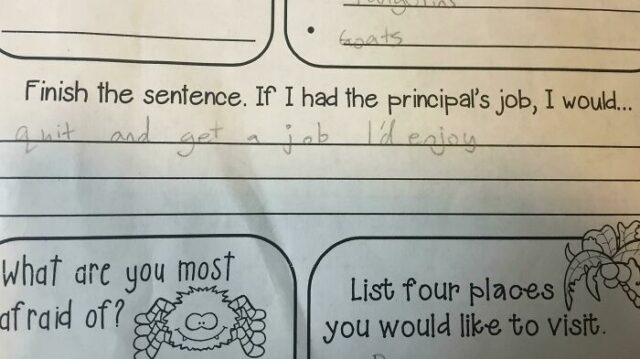 Goats
Finish the sentence. If I had the principal's job, I would...
quit and get a job I'd enjoy
What are you most
afraid of?
List four places
you would like to visit.